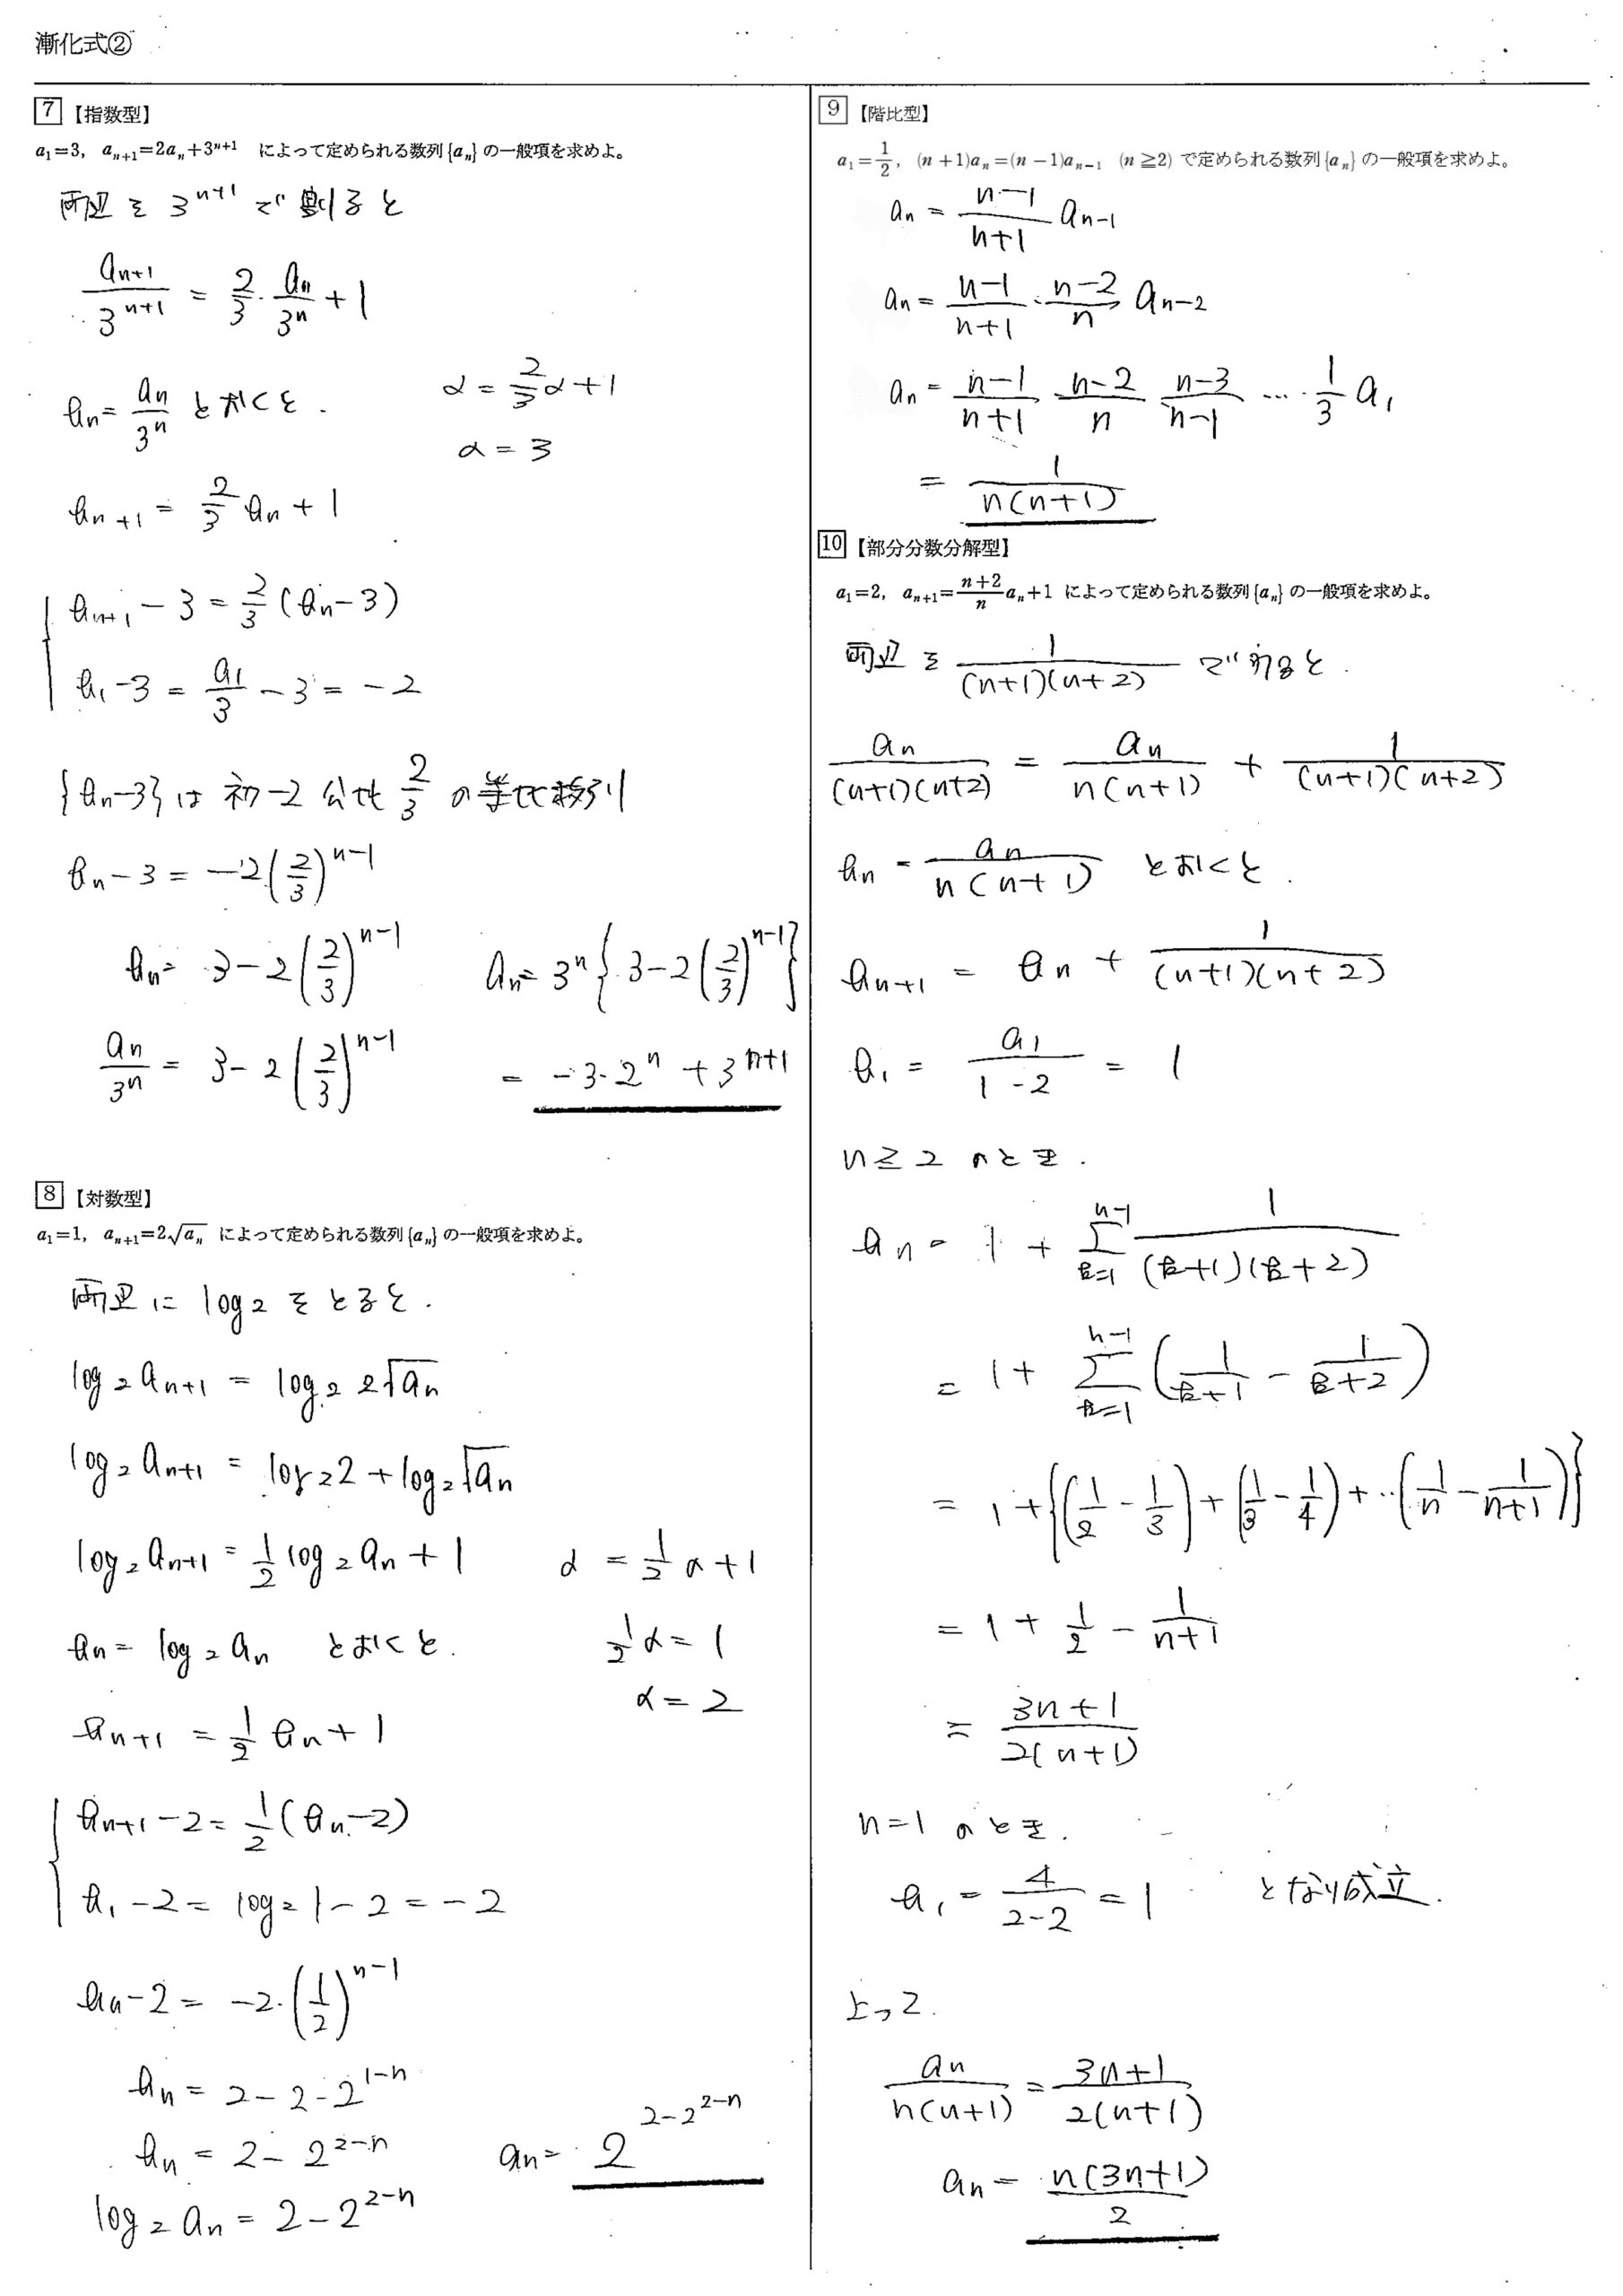 漸化式②
7 【指数型】
a₁=3, aₙ₊₁=2aₙ+3ⁿ⁺¹ によって定められる数列{aₙ}の一般項を求めよ。
両辺を 3ⁿ⁺¹ で割ると
aₙ₊₁/3ⁿ⁺¹ = 2/3・aₙ/3ⁿ + 1
bₙ = aₙ/3ⁿ とおくと.
α = 2/3 α + 1
α = 3
bₙ₊₁ = 2/3 bₙ + 1
bₙ₊₁ − 3 = 2/3 (bₙ − 3)
b₁ − 3 = a₁/3 − 3 = −2
{bₙ−3} は 初−2 公比 2/3 の等比数列
bₙ − 3 = −2(2/3)ⁿ⁻¹
bₙ = 3 − 2(2/3)ⁿ⁻¹
aₙ/3ⁿ = 3 − 2(2/3)ⁿ⁻¹
aₙ = 3ⁿ{3 − 2(2/3)ⁿ⁻¹}
= −3・2ⁿ + 3ⁿ⁺¹
8 【対数型】
a₁=1, aₙ₊₁=2√aₙ によって定められる数列{aₙ}の一般項を求めよ。
両辺に log₂ をとると.
log₂ aₙ₊₁ = log₂ 2√aₙ
log₂ aₙ₊₁ = log₂ 2 + log₂ √aₙ
log₂ aₙ₊₁ = 1/2 log₂ aₙ + 1
α = 1/2 α + 1
bₙ = log₂ aₙ とおくと.
1/2 α = 1
α = 2
bₙ₊₁ = 1/2 bₙ + 1
bₙ₊₁ − 2 = 1/2 (bₙ − 2)
b₁ − 2 = log₂ 1 − 2 = −2
bₙ − 2 = −2・(1/2)ⁿ⁻¹
bₙ = 2 − 2・2¹⁻ⁿ
bₙ = 2 − 2²⁻ⁿ
log₂ aₙ = 2 − 2²⁻ⁿ
aₙ = 2^(2−2^(2−n))
9 【階比型】
a₁=1/2, (n+1)aₙ=(n−1)aₙ₋₁ (n≧2) で定められる数列{aₙ}の一般項を求めよ。
aₙ = (n−1)/(n+1) aₙ₋₁
aₙ = (n−1)/(n+1)・(n−2)/n aₙ₋₂
aₙ = (n−1)/(n+1)・(n−2)/n (n−3)/(n−1) … 1/3 a₁
= 1/(n(n+1))
10 【部分分数分解型】
a₁=2, aₙ₊₁=(n+2)/n aₙ+1 によって定められる数列{aₙ}の一般項を求めよ。
両辺を 1/((n+1)(n+2)) で割ると.
aₙ/((n+1)(n+2)) = aₙ/(n(n+1)) + 1/((n+1)(n+2))
bₙ = aₙ/(n(n+1)) とおくと.
bₙ₊₁ = bₙ + 1/((n+1)(n+2))
b₁ = a₁/(1・2) = 1
n≧2 のとき.
bₙ = 1 + Σ[k=1, n−1] 1/((k+1)(k+2))
= 1 + Σ[k=1, n−1] (1/(k+1) − 1/(k+2))
= 1 + {(1/2 − 1/3) + (1/3 − 1/4) + ‥(1/n − 1/(n+1))}
= 1 + 1/2 − 1/(n+1)
= (3n+1)/(2(n+1))
n=1 のとき.
b₁ = 4/(2・2) = 1 となり成立.
よって.
aₙ/(n(n+1)) = (3n+1)/(2(n+1))
aₙ = n(3n+1)/2